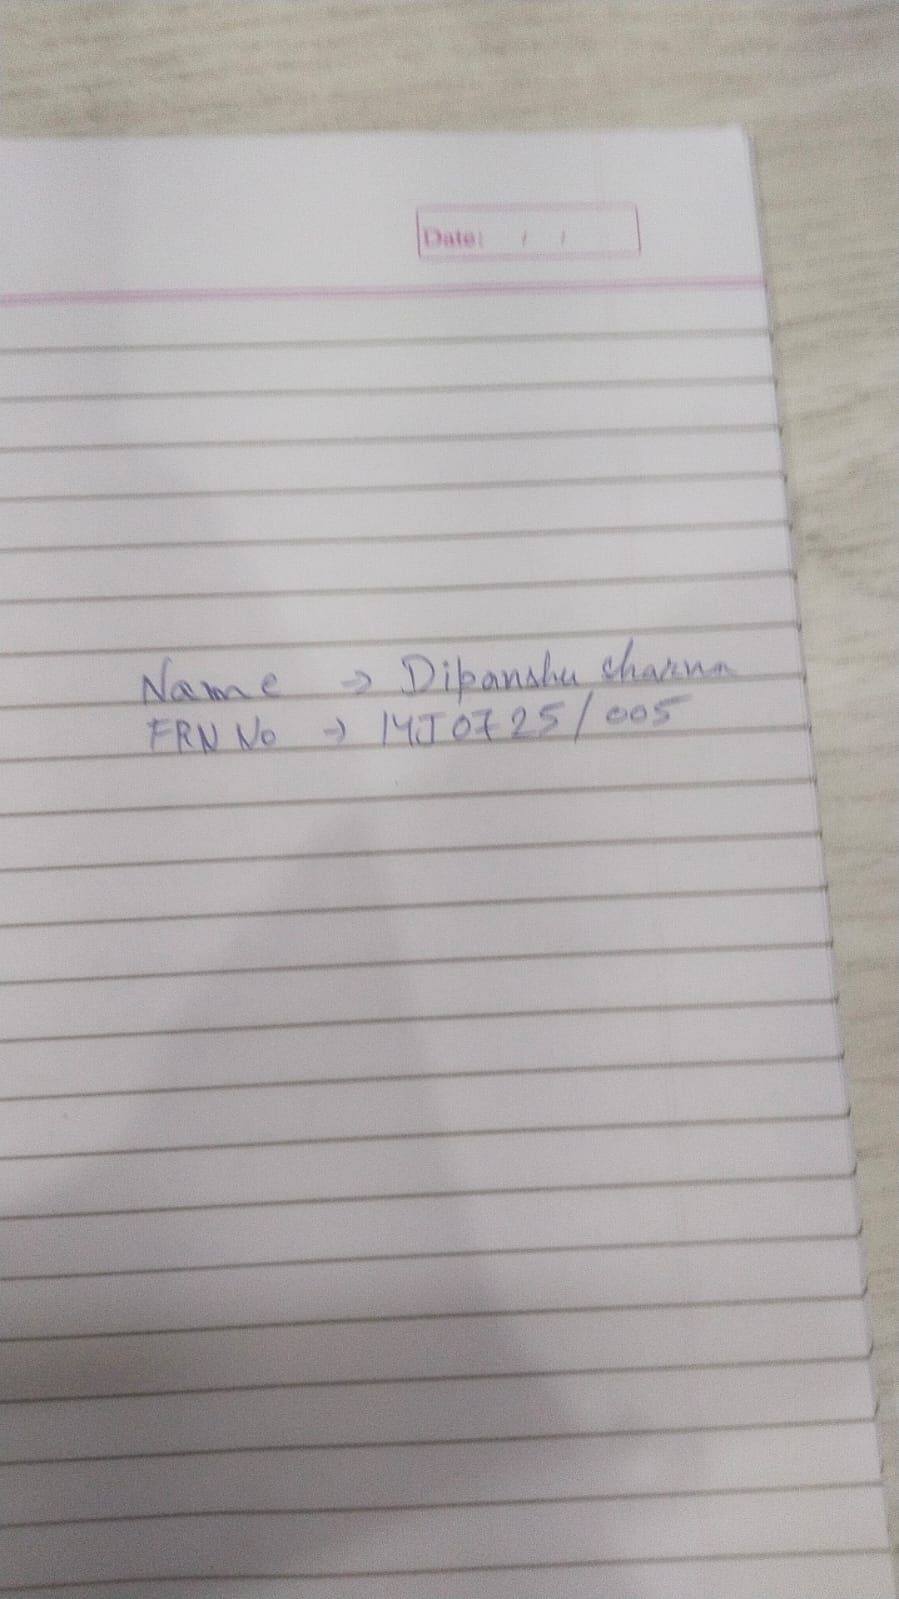 Date: / /
Name → Dipanshu sharma
FRN No → 14J0725/005